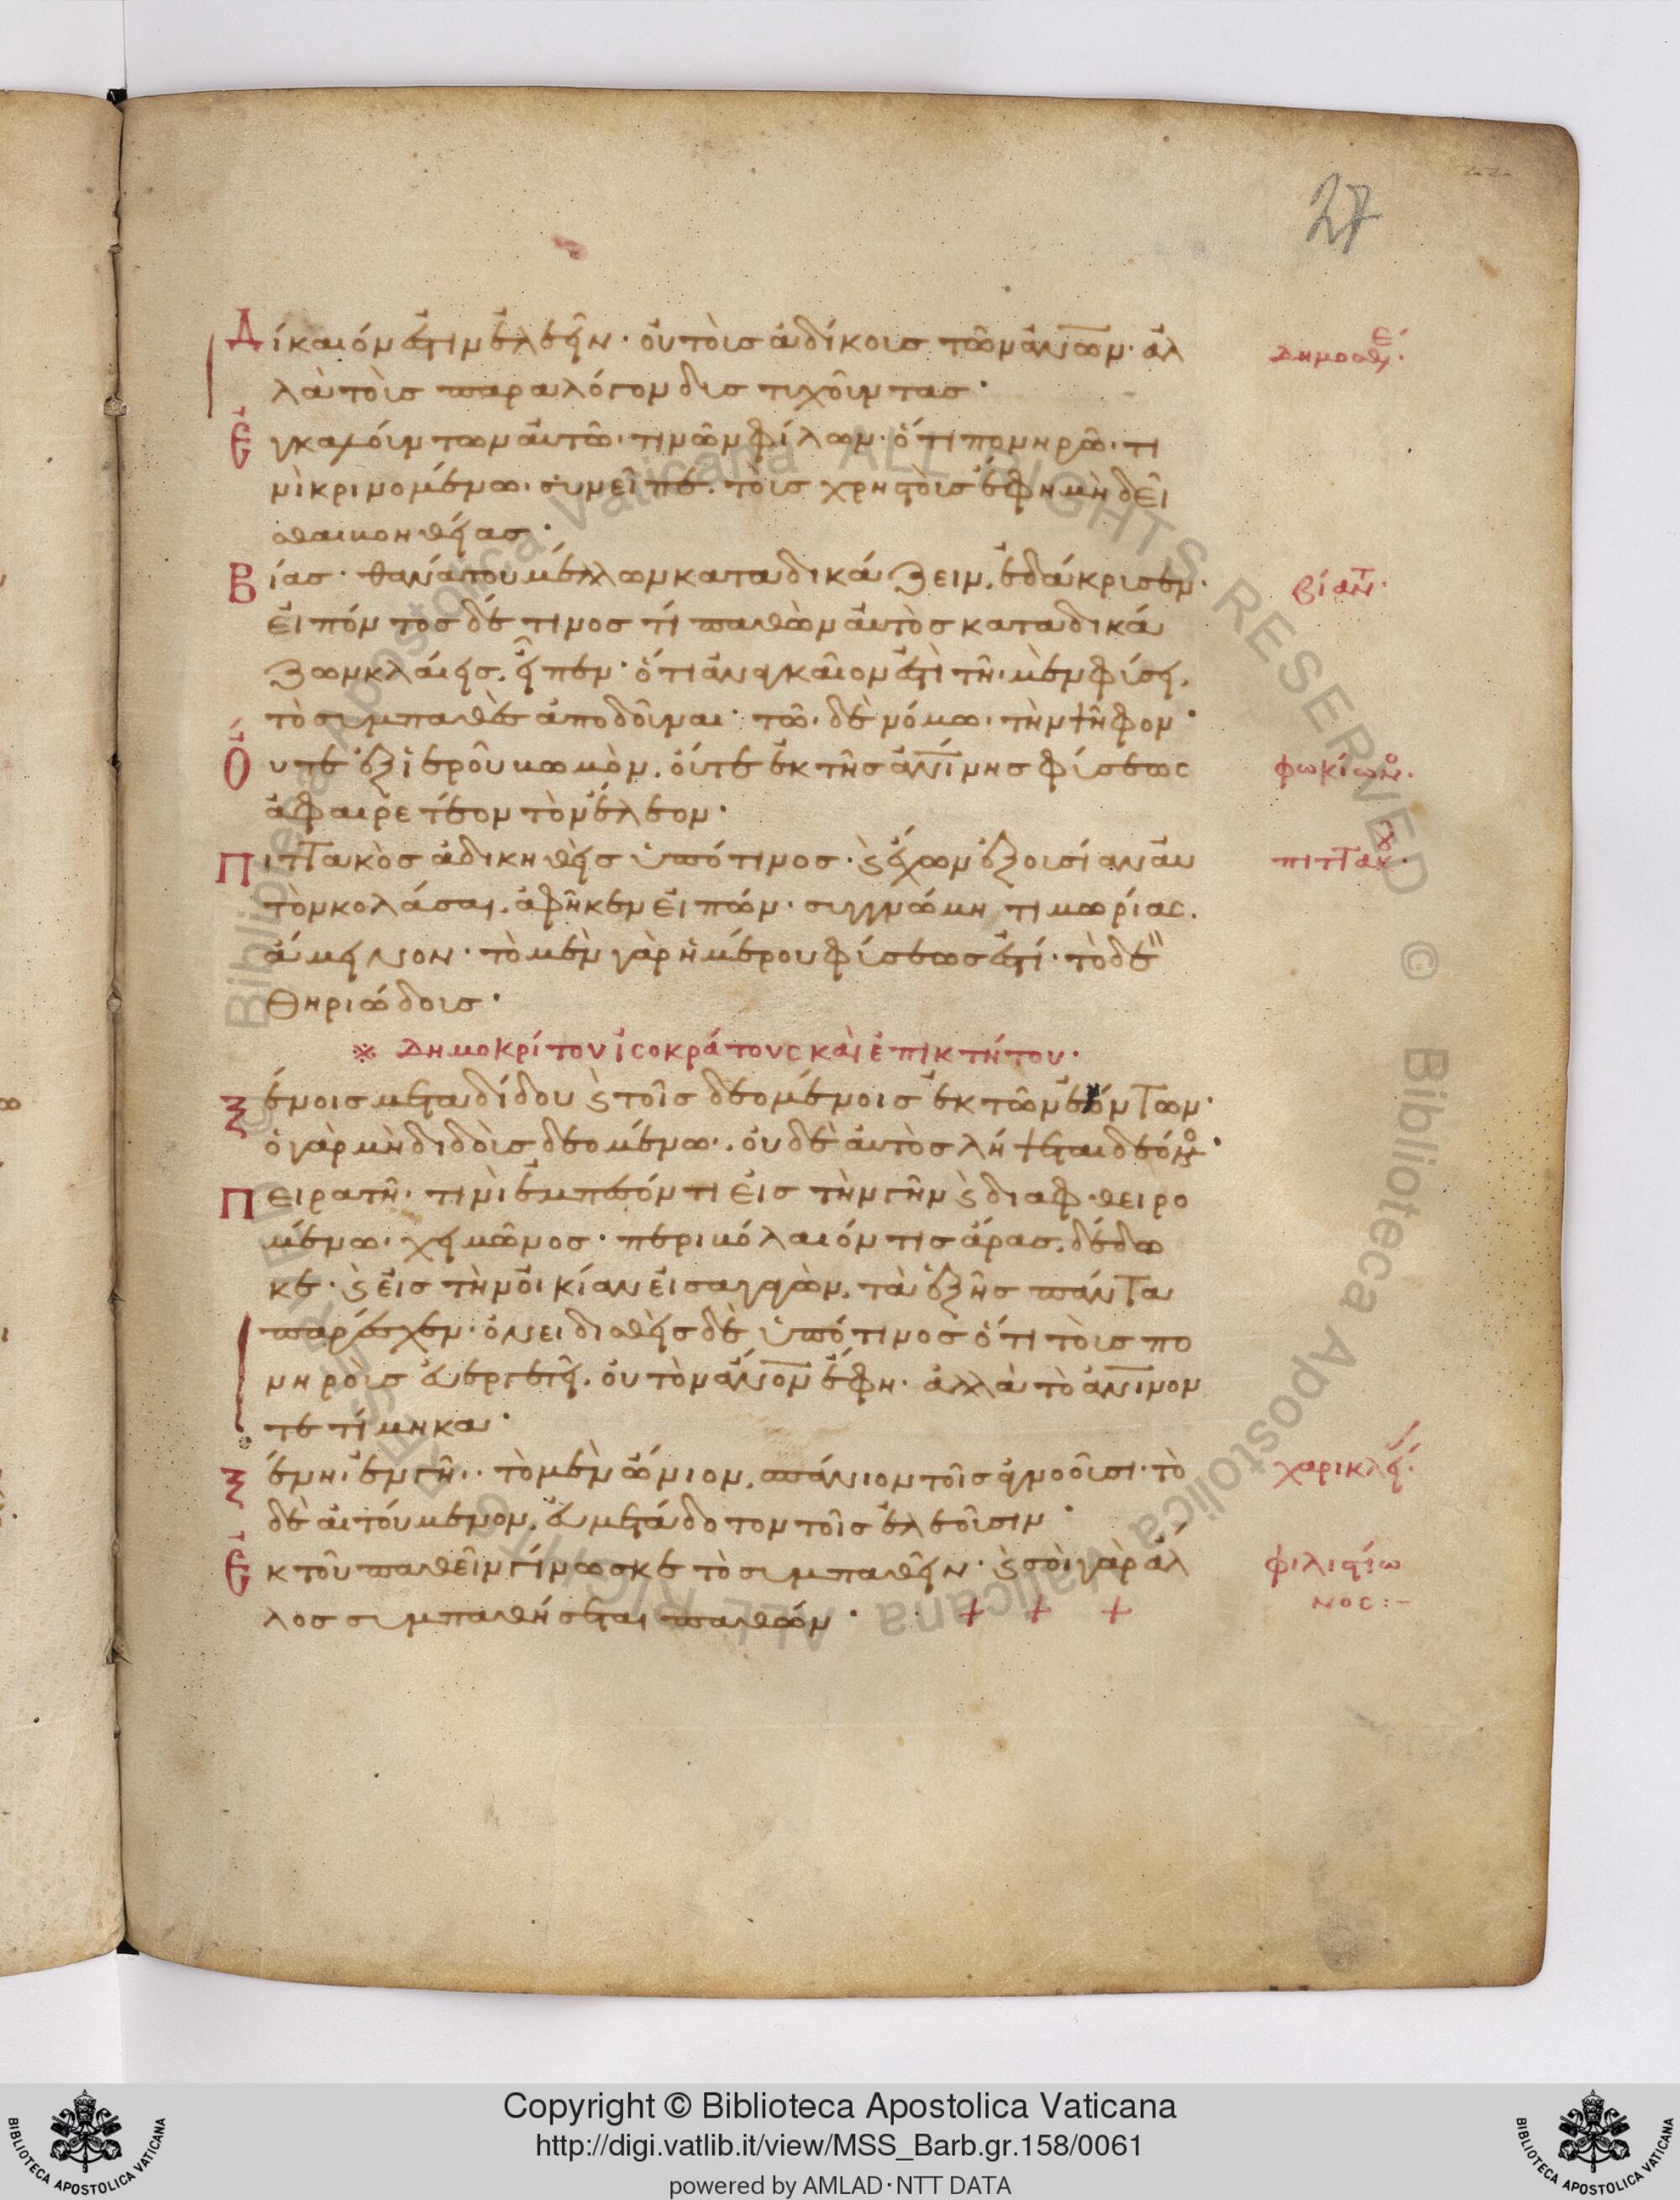 27
Δίκαιόν ἐστιν ἐλεεῖν· οὐ τοὺς ἀδίκους τῶν ἀνων· ἀλ
λὰ τοὺς παραλόγον δυς τυχοῦντας·
δημοσθέ·
Ἐγκαλούντων αὐτῶ· τινῶν φίλων· ὅτι πονηρῶ· τι
νὶ κρινομένω· συνεῖπε. τοὺς χρηστοὺς ἔφη μὴ δεῖ
σθαι βοηθείας·
Βίας· θανάτου μέλλων καταδικάζειν, ἐδάκρυσεν·
βίαντ·
εἰπόντος δέ τινος τί παθὼν αὐτὸς καταδικά
ζων κλαίεις, εἶπεν· ὅτι ἀναγκαῖον ἐστὶ τῆ· μὲν φύσει,
τὸ συμπαθὲς ἀποδοῦναι· τῶ· δὲ νόμω· τὴν ψῆφον·
Οὔτε ἐξ ἱεροῦ βωμὸν, οὔτε ἐκ τῆς ἀνίνης φύσεως
φωκίωνο·
ἀφαιρετέον τὸν ἔλεον·
Πιττακὸς ἀδικηθεὶς ὑπό τινος· ϛ ἔχων ἐξουσίαν αὐ
πιττακοῦ·
τὸν κολάσαι, ἀφῆκεν εἰπών· συγγνώμη τιμωρίας,
ἀμείνον· τὸ μὲν γὰρ ἡμέρου φύσεως ἐστί· τὸ δὲ
θηριώδους·
※ Δημοκρίτου ἰσοκράτους καὶ ἐπικτήτου·
Ξένοις μεταδίδου ϛ τοῖς δεομένοις ἐκ τῶν ἐόντων·
ὁ γὰρ μὴ διδοὺς δεομένω·, οὐδὲ αὐτὸς λήψεται δεόμο·
Πειρατῆ· τινὶ ἐμπεσόντι εἰς τὴν γῆν ϛ διαφθειρο
μένω· χειμῶνος· περιβόλαιόν τις ἄρας, δέδω
κε· ϛ εἰς τὴν οἰκίαν εἰσαγαγὼν, τὰ ἑξῆς πάντα
παρέσχεν· ὀνειδισθεὶς δὲ ὑπό τινος ὅτι τοὺς πο
νηροὺς εὐεργετεῖ, οὐ τὸν ἄνον ἔφη· ἀλλὰ τὸ ἀνινον
τετίμηκα·
Ξένη· ἐν γῆ·· τὸ μὲν ὤνιον, σπάνιον τοῖς ἀγνοοῦσι· τὸ
χαρικλεί·
δὲ αἰτούμενον, εὐμετάδοτον τοῖς ἐλεοῦσιν·
Ἐκ τοῦ παθεῖν γίνωσκε τὸ συμπαθεῖν· ϛ σοὶ γὰρ ἄλ
φιλιστίω
λος συμπαθήσεται παθών· + + +
νος:–
Copyright © Biblioteca Apostolica Vaticana
http://digi.vatlib.it/view/MSS_Barb.gr.158/0061
powered by AMLAD·NTT DATA
BIBLIOTECA APOSTOLICA VATICANA
BIBLIOTECA APOSTOLICA VATICANA
Biblioteca Apostolica Vaticana ALL RIGHTS RESERVED © Biblioteca Apostolica Vaticana ALL RIGHTS RESERVED ©